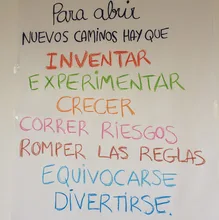 Para abrir
NUEVOS CAMINOS HAY QUE
INVENTAR
EXPERIMENTAR
CRECER
CORRER RIESGOS
ROMPER LAS REGLAS
EQUIVOCARSE
DIVERTIRSE.